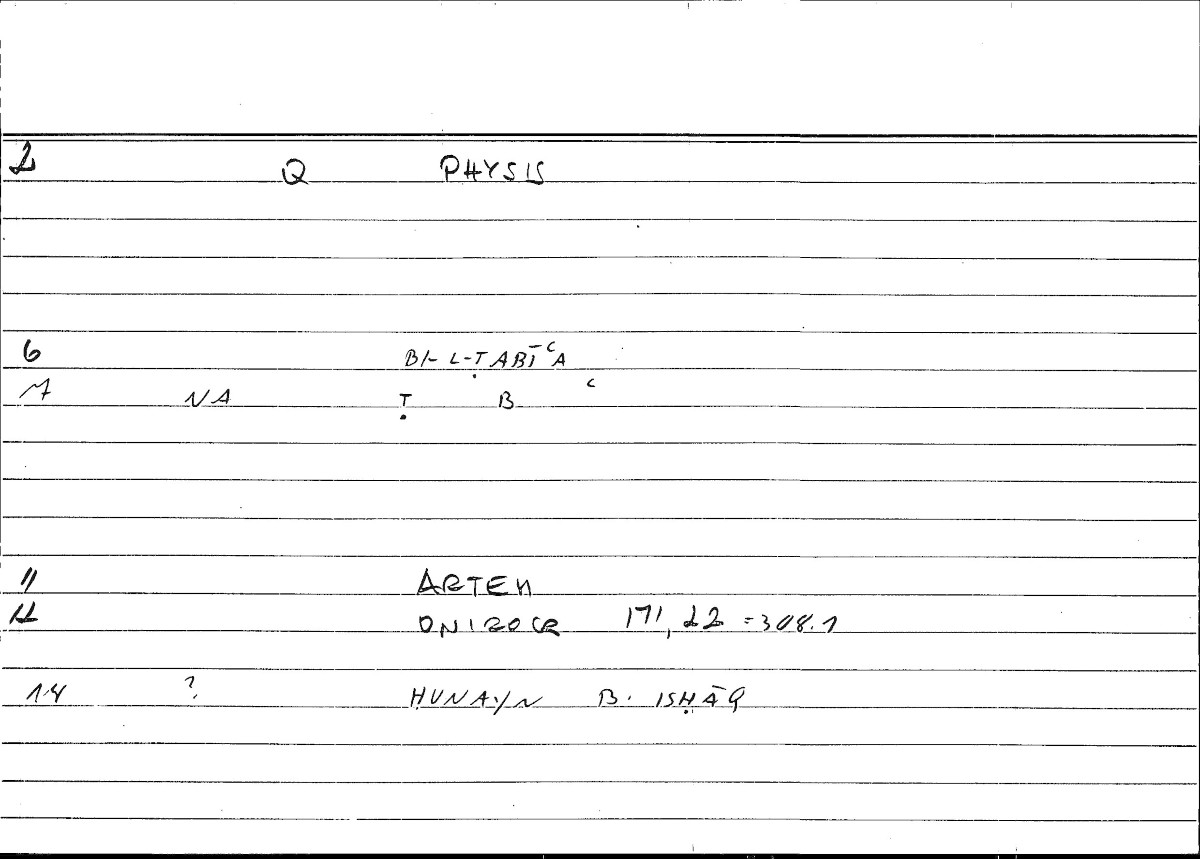 2 Q PHYSIS
6 BI-L-ṬABĪʿA
7 NA Ṭ B ʿ
11 ARTEM
12 ONIROCR 171,22 = 308.1
14 ? ḤUNAYN B. ISḤĀQ